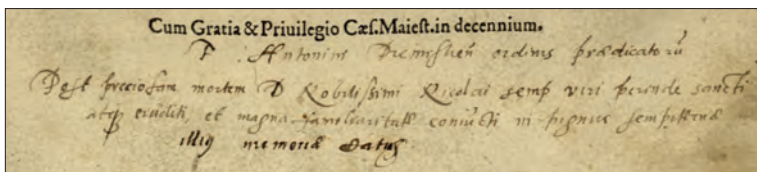 Cum Gratia & Priuilegio Cæs. Maiest. in decennium.
F. Antonius ordinis prædicatorū
Post preciosam mortem D Nobilissimi Nicolai semp viri perinde sancti
atq eruditi, et magna familiaritate coniūcti in pignus sempiternæ
illiq memoriæ datus